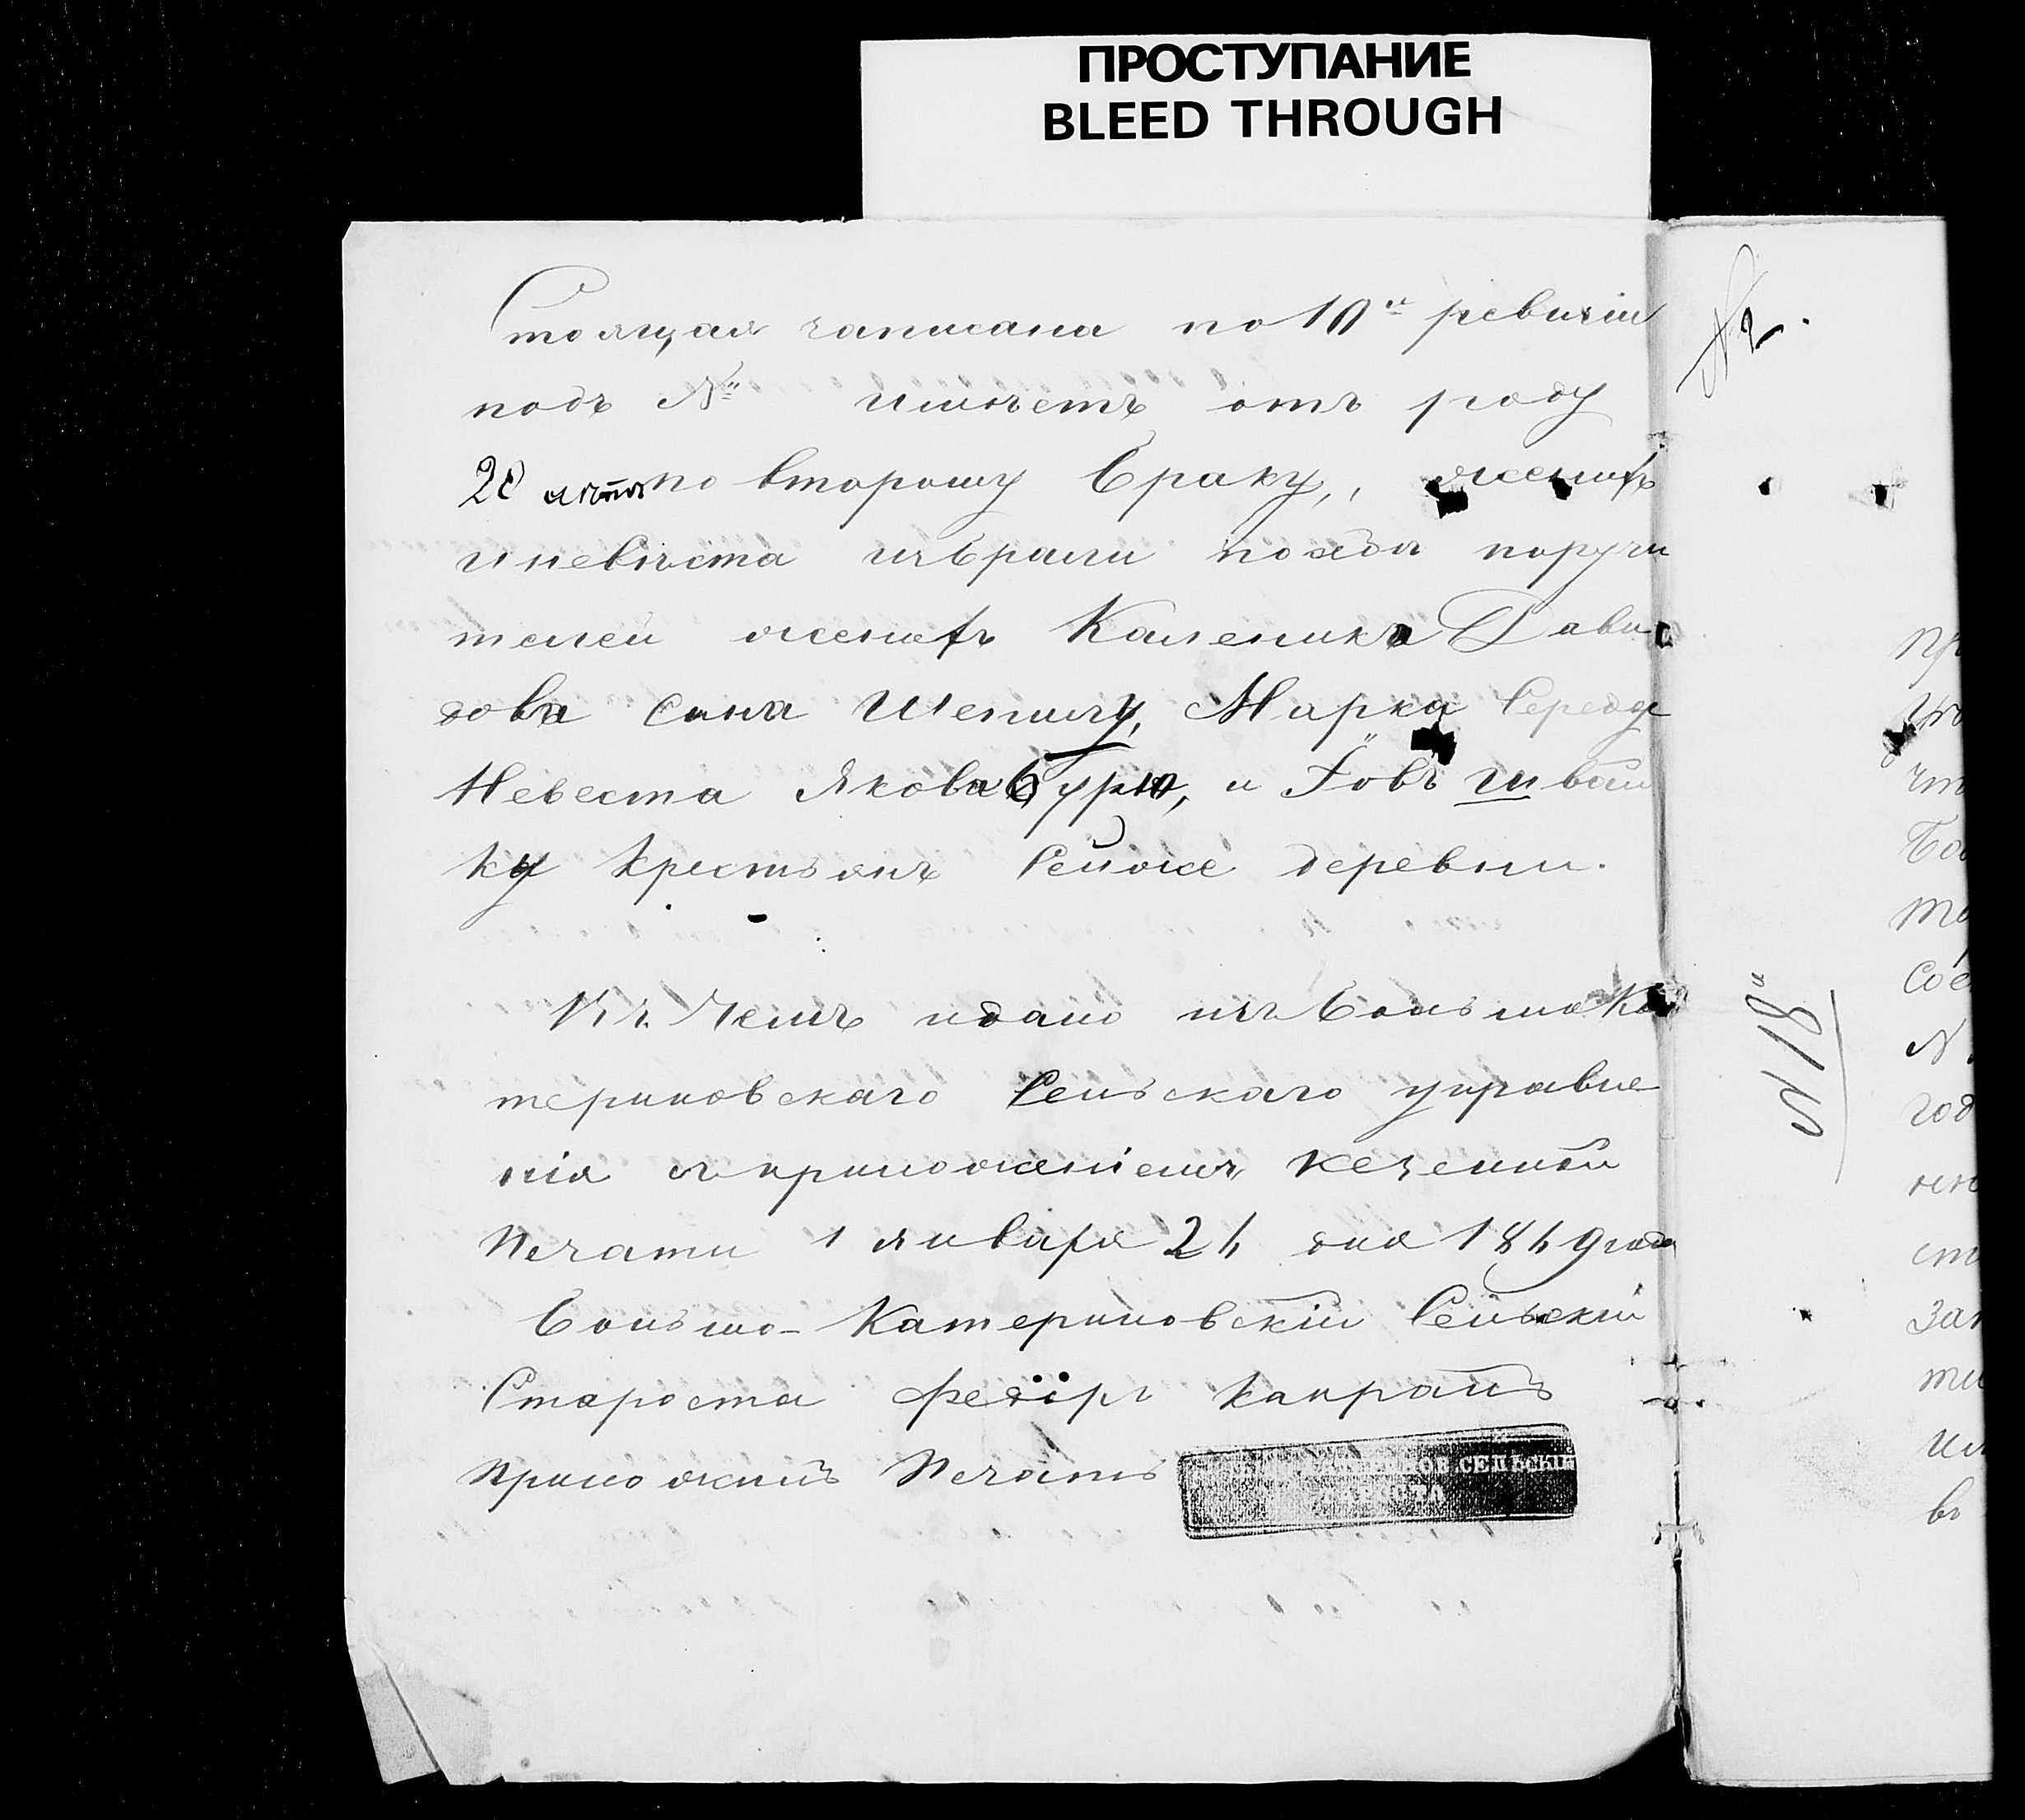 ПРОСТУПАНИЕ
BLEED THROUGH
Стоящая записана по 10й ревизіи
подъ № имѣетъ отъ роду
20 лѣтъ по второму браку, женихъ
и невѣста избрали посебѣ поручи
телей женихъ Каленика Дави
дова сина Шепилу, Марка Середу
Невеста Якова Бурю, и Іовъ Шевай
ку крестьянъ сейже деревни.
Въ Чемъ идано изъ Большо Ка
териновскаго Сельскаго управле
нія съ приложеніемъ Кезенной
Печати 1 января 24 дня 1869 года
Большо-Катериновскій Сельскій
Староста Федоръ
приложилъ Печать
СЕЛЬСКІЙ
СТАРОСТА
№ 2.
№ 18й
Пр
что
Бо
то
сое
№
год
нн
ст
зап
ти
им
въ